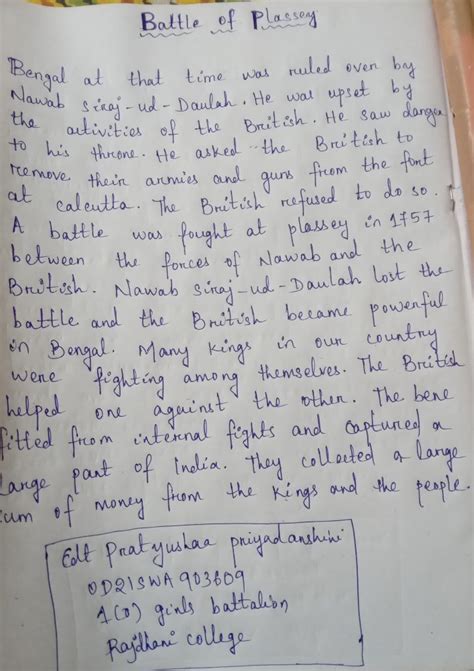 Battle of Plassey
Bengal at that time was ruled over by
Nawab Siraj-ud-Daulah. He was upset by
the activities of the British. He saw danger
to his throne. He asked the British to
remove their armies and guns from the font
at calcutta. The British refused to do so.
A battle was fought at plassey in 1757
between the forces of Nawab and the
British. Nawab Siraj-ud-Daulah lost the
battle and the British became powerful
in Bengal. Many kings in our country
were fighting among themselves. The British
helped one against the other. The bene
fitted from internal fights and captured a
large part of India. They collected a large
sum of money from the kings and the people.
Cdt Pratyushaa priyadarshini
OD21SWA903609
1(O) girls battalion
Rajdhani college